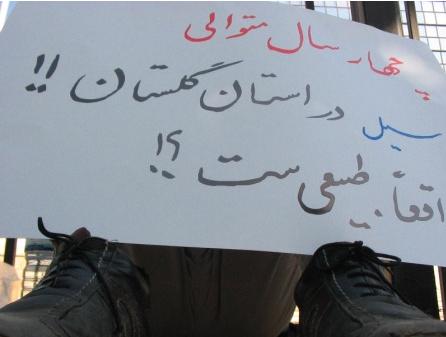 چهار سال متوالی
سیل در استان گلستان !!
واقعاً طبیعی ست ؟!